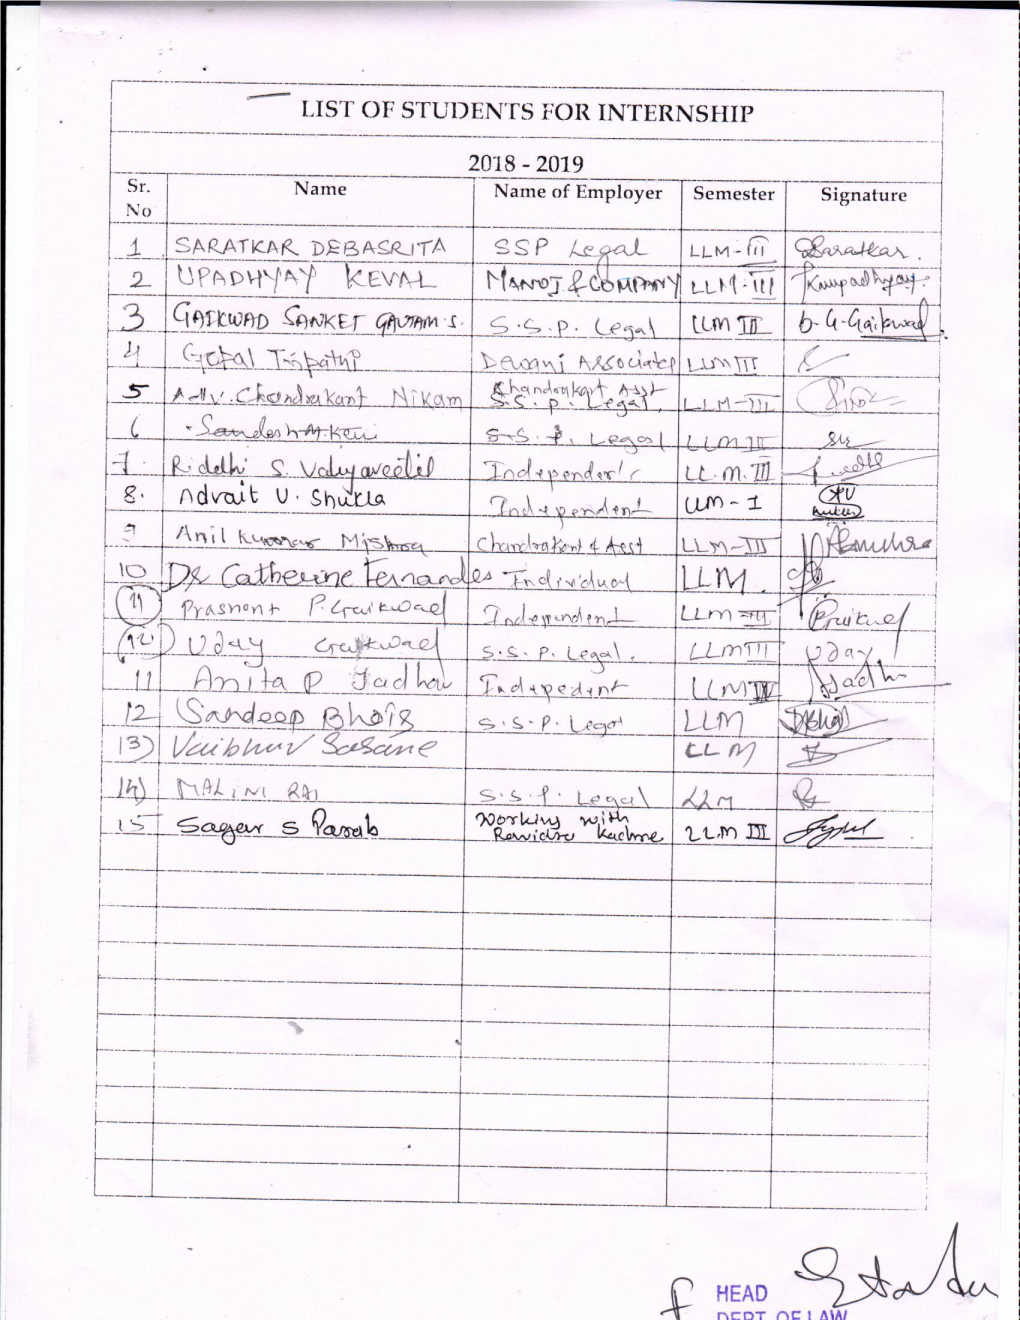 LIST OF STUDENTS FOR INTERNSHIP
2018 - 2019
Sr. No Name Name of Employer Semester Signature
1 SARATKAR DEBASRITA SSP Legal LLM-III Saratkar.
2 UPADHYAY KEVAL MANOJ & COMPANY LLM-III Knupadhyay
3 GAIKWAD SANKET GAUTAM S. S.S.P. Legal LLM III b-G-Gaikwad
4 Gopal Tripathi Dewani Associates LLM III
5 Adv. Chandrakant Nikam Chandrakant Asst S.S.P. Legal. LLM-III
6 Sandesh M. S.S.P. Legal LLM III
7 Riddhi S. Valiyaveetil Independent LL.M. III
8. Advait U. Shukla Independent LLM - I
9 Anil Kumar Mishra Chandrakant & Asst LLM-III
10 Dr Catherine Fernandes Individual LLM.
11 Prasnant P. Gaikwad Independent LLM
12) Uday Gaikwad S.S.P. Legal. LLM III Uday
11 Anita P Jadhav Indepedent LLM Jadhav
12 Sandeep Bhois S.S.P. Legal LLM
13) Vaibhav Sasane LLM
14) MALINI RAI S.S.P. Legal LLM
15 Sagar S Parab Working with LLM III
HEAD
DEPT. OF LAW